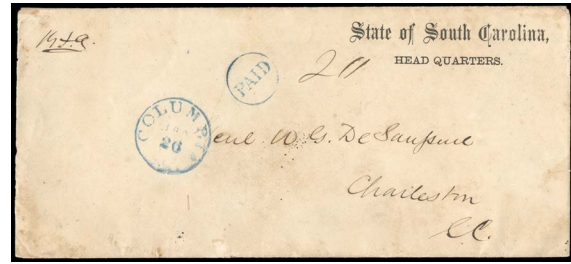 State of South Carolina,
HEAD QUARTERS.
PAID
COLUMBIA
26
W. G. De Saussure
Charleston
S.C.